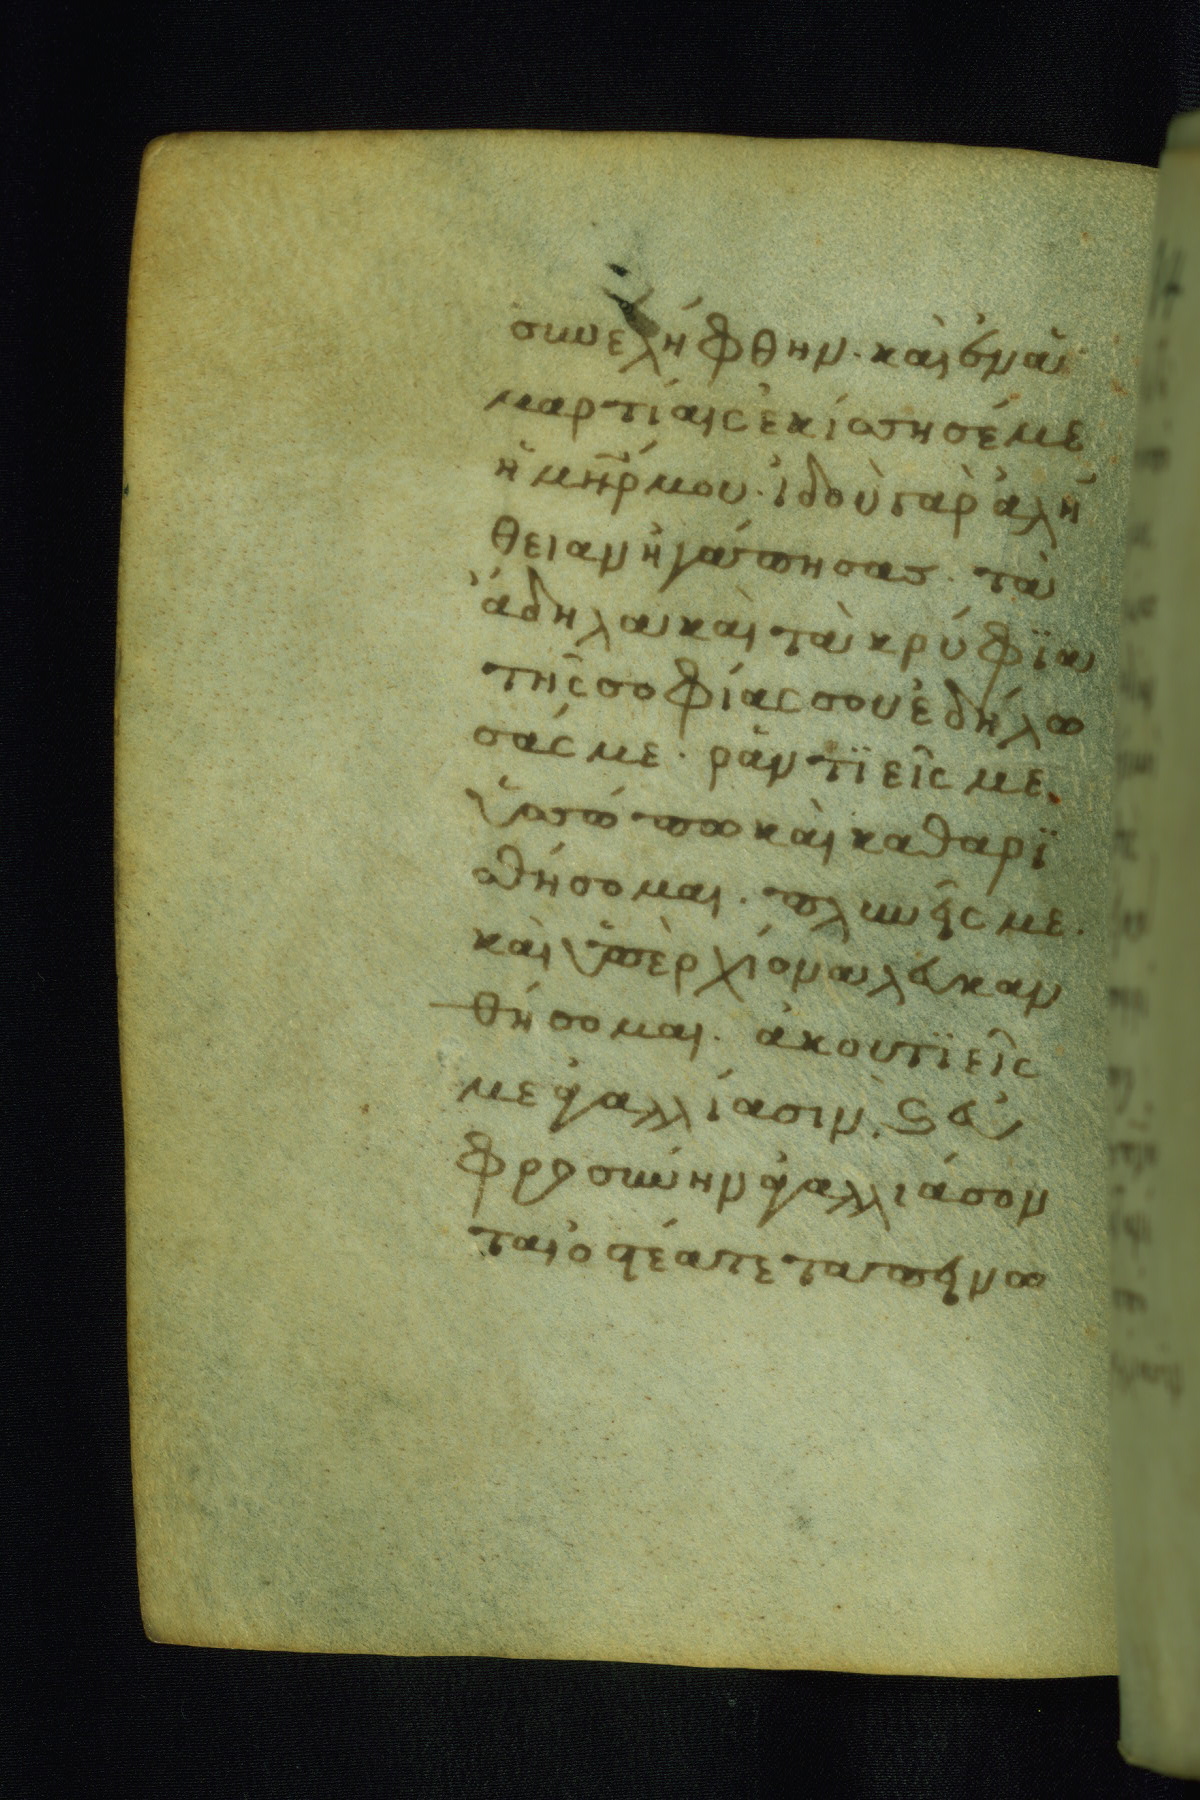 συνελήφθην· καὶ ἐν ἁ
μαρτίαις ἐκίσσησέ με
ἡ μη̅ρ μου· ἰδοὺ γὰρ ἀλή
θειαν ἠγάπησας· τὰ
ἄδηλα καὶ τὰ κρύφϊα
τῆς σοφίας σου ἐδήλω
σάς με· ραντϊεῖς με
ὑσσώπω καὶ καθαρϊ
σθήσομαι· πλυνεῖς με·
καὶ ὑπὲρ χιόνα λευκαν
θήσομαι· ἀκουτϊεῖς
με ἀγαλλίασιν· ϗ εὐ
φροσύνην ἀγαλλιάσον
ται ὀστέα τεταπεινω